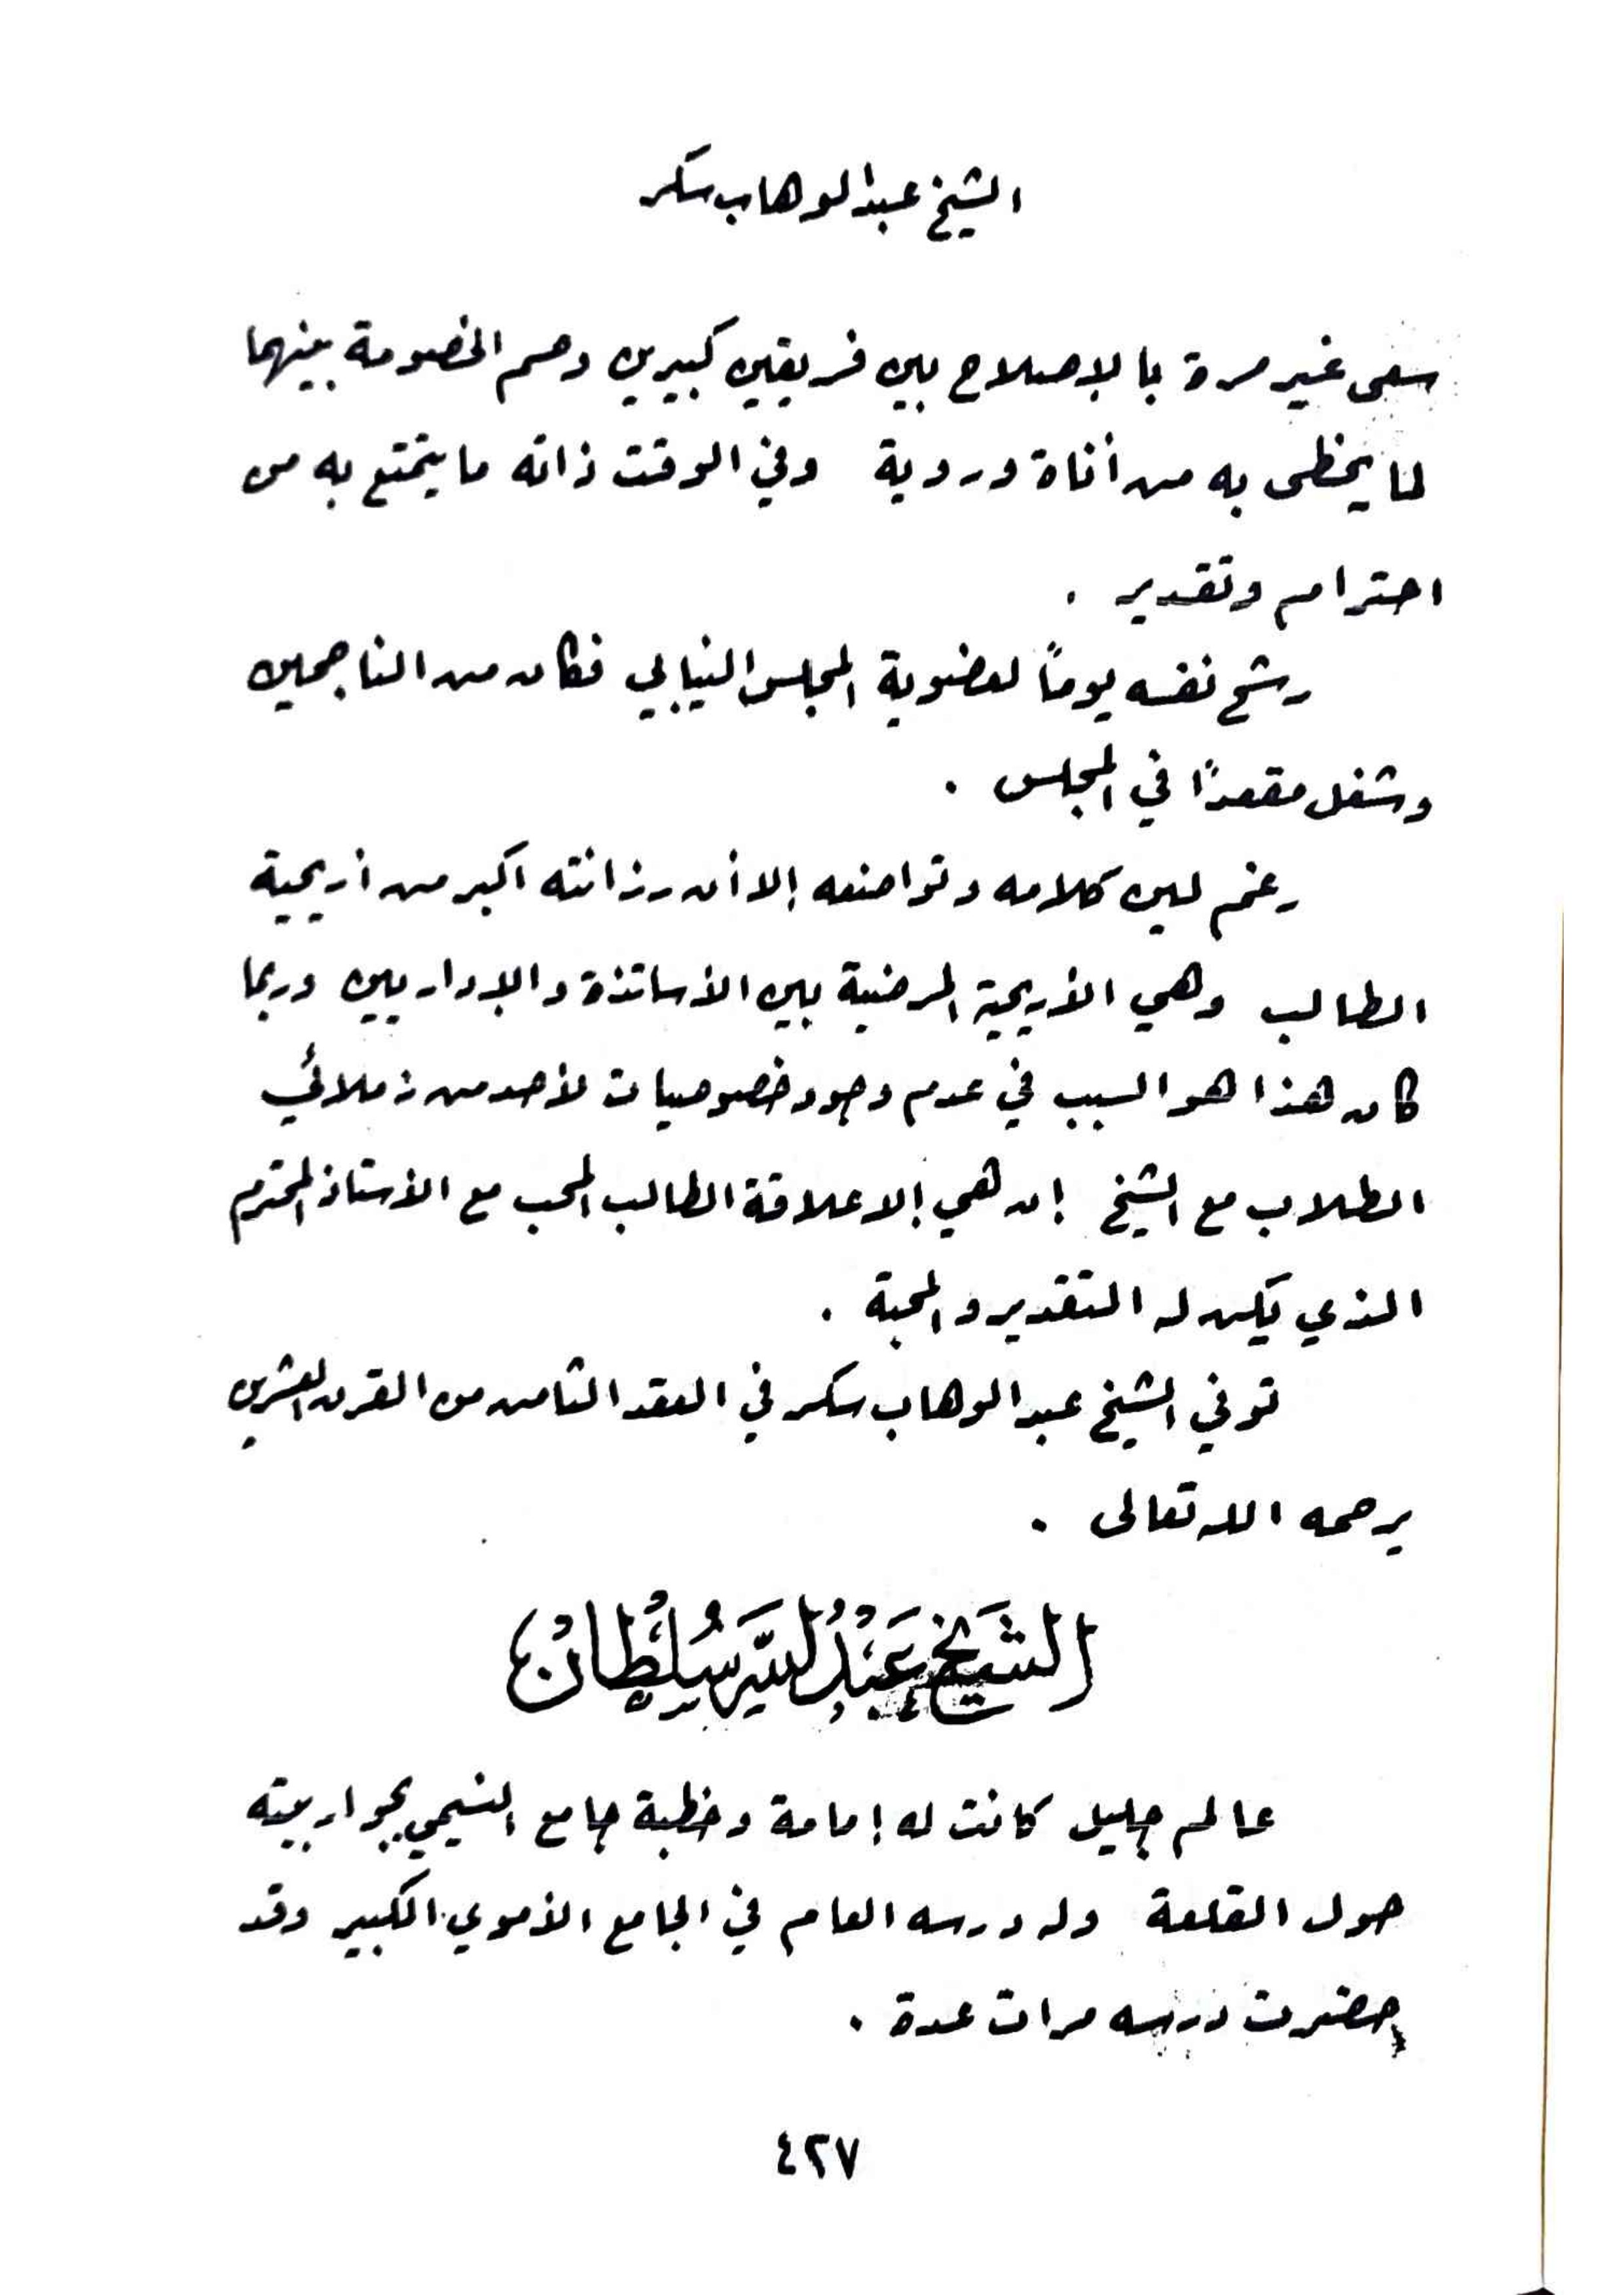 الشيخ عبد الوهاب سكر
سعى غير مرة بالإصلاح بين فريقين كبيرين وحسم الخصومة بينهما
لما يحظى به من أناة وروية وفي الوقت ذاته ما يتمتع به من
احترام وتقدير .
رشح نفسه يوماً لعضوية المجلس النيابي فكان من الناجحين
وشغل مقعداً في المجلس .
رغم لين كلامه وتواضعه إلا أن رزانته اكبر من أريحية
الطالب وهي الأريحية المرضية بين الأساتذة والإداريين وربما
كان هذا هو السبب في عدم وجود خصوصيات لأحد من زملائي
الطلاب مع الشيخ إن هي إلا علاقة الطالب المحب مع الأستاذ المحترم
الذي يكن له التقدير والمحبة .
توفي الشيخ عبد الوهاب سكر في العقد الثامن من القرن العشرين
يرحمه الله تعالى .
الشَيْخ عَبْدُ اللَّه سُلْطَانْ
عالم جليل كانت له إمامة وخطبة جامع النسيمي بجوار بيته
حول القلعة وله درسه العام في الجامع الأموي الكبير وقد
حضرت درسه مرات عدة .
٤٢٧